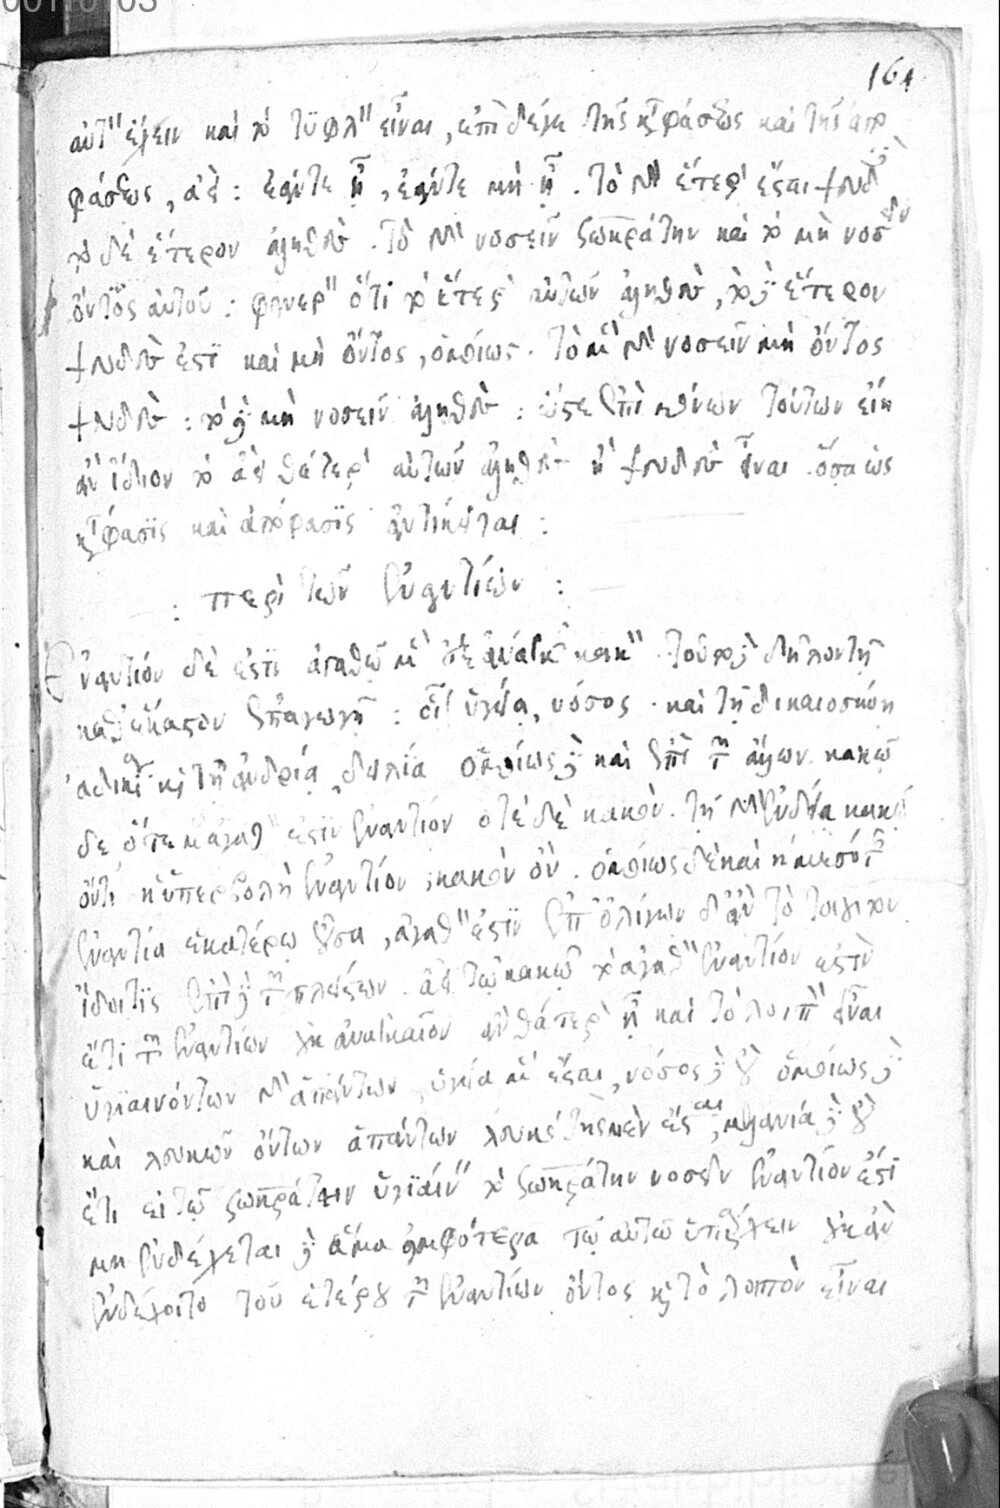 164
αὐτὸν ἔχειν καὶ τὸ τυφλὸν εἶναι, ἐπὶ δέ γε τῆς καταφάσεως καὶ τῆς ἀπο
φάσεως, ἀεὶ : ἐάντε ᾖ, ἐάντε μὴ ᾖ . τὸ μὲν ἕτερον ἔσται ψεῦδος
τὸ δὲ ἕτερον ἀληθές . τὸ μὲν νοσεῖν σωκράτην καὶ τὸ μὴ νοσεῖν
ὄντος αὐτοῦ : φανερὸν ὅτι τὸ ἕτερον αὐτῶν ἀληθὲς, τὸ δὲ ἕτερον
ψεῦδος ἐστὶ καὶ μὴ ὄντος, ὁμοίως . τὸ μὲν νοσεῖν μὴ ὄντος
ψεῦδος : τὸ δὲ μὴ νοσεῖν ἀληθές : ὥστε ἐπὶ μόνων τούτων εἴη
ἂν ἴδιον τὸ ἀεὶ θάτερον αὐτῶν ἀληθὲς ἢ ψεῦδος εἶναι . ὅσα ὡς
κατάφασις καὶ ἀπόφασις ἀντίκειται :
: περὶ τῶν ἐναντίων :
Ἐναντίον δέ ἐστι ἀγαθῷ μὲν ἐξ ἀνάγκης κακὸν . τοῦτο δὲ δῆλον τῇ
καθ' ἕκαστον ἐπαγωγῇ : οἷον ὑγεία, νόσος . καὶ τῇ δικαιοσύνῃ
ἀδικία καὶ τῇ ἀνδρίᾳ, δειλία ὁμοίως δὲ καὶ ἐπὶ τῶν ἄλλων. κακῷ
δε, ὅτε μὲν ἀγαθόν ἐστιν ἐναντίον ὁτὲ δὲ κακόν . τῇ μὲν ἐνδείᾳ κακῷ
ὄντι ἡ ὑπερβολὴ ἐναντίον, κακὸν ὄν . ὁμοίως δὲ καὶ ἡ μεσότης
ἐναντία ἑκατέρῳ οὖσα, ἀγαθόν ἐστιν ἐπ' ὀλίγων δ' ἂν τὸ τοιοῦτον
ἴδοι τις ἐπὶ δὲ τῶν πλείστων . ἀεὶ τῷ κακῷ τὸ ἀγαθὸν ἐναντίον ἐστὶν
ἔτι τῶν ἐναντίων οὐκ ἀναγκαῖον ἂν θάτερον ᾖ καὶ τὸ λοιπὸν εἶναι
ὑγιαινόντων μὲν ἁπάντων, ὑγεία μὲν ἔσται, νόσος δὲ οὔ ὁμοίως δὲ
καὶ λευκῶν ὄντων ἁπάντων λευκότης μὲν ἔσται, μελανία δὲ οὔ
ἔτι εἰ τῷ σωκράτην ὑγιαίνειν τὸ σωκράτην νοσεῖν ἐναντίον ἐστὶ
μὴ ἐνδέχεται δὲ ἅμα ἀμφότερα τῷ αὐτῷ ὑπάρχειν οὐκ ἂν
ἐνδέχοιτο τοῦ ἑτέρου τῶν ἐναντίων ὄντος καὶ τὸ λοιπὸν εἶναι